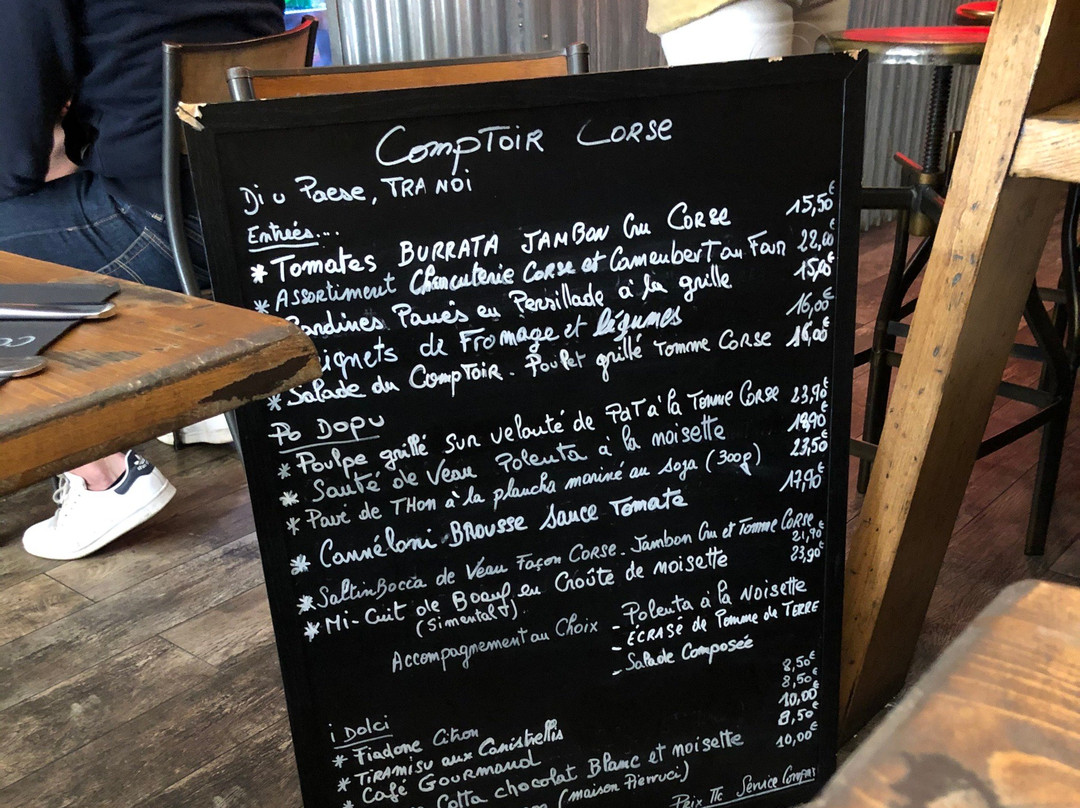 CompToiR CoRSE
Di u Paese, TRA NOI
Entrées...
* Tomates BURRATA JAMBON Cru CoRSE 15,50€
* Assortiment Charcuterie Corse et CamemberT au Four 22,00€
Sardines Panés en Persillade à la grille 15,90€
ignets de Fromage et légumes 16,00€
* Salade du CompToiR. Poulet grillé Tomme CoRSE 16,00€
Po Dopu
* Poulpe grillé sur velouté de PdT à la Tomme CoRSE 23,90€
* Sauté de Veau Polenta à la noisette 18,90€
* Pavé de THon à la plancha mariné au soja (300g) 23,50€
* Cannéloni BRousse Sauce Tomate 17,90€
* SaltinBocca de Veau Façon CoRSE. Jambon Cru et Tomme CoRSE 21,90€
* Mi-Cuit de Boeuf en Croûte de noisette 23,90€
(Simental)
Accompagnement au Choix - Polenta à la Noisette
- ÉCRASÉ de Pomme de TERRE
- Salade Composée
i Dolci
* Fiadone Citron 8,50€
* TiRAMiSu aux Canistrellis 8,50€
* Café Gourmand 10,00€
Cotta chocolat Blanc et noisette 8,50€
(maison Pierruci) 10,00€
Prix TTc Service Compris